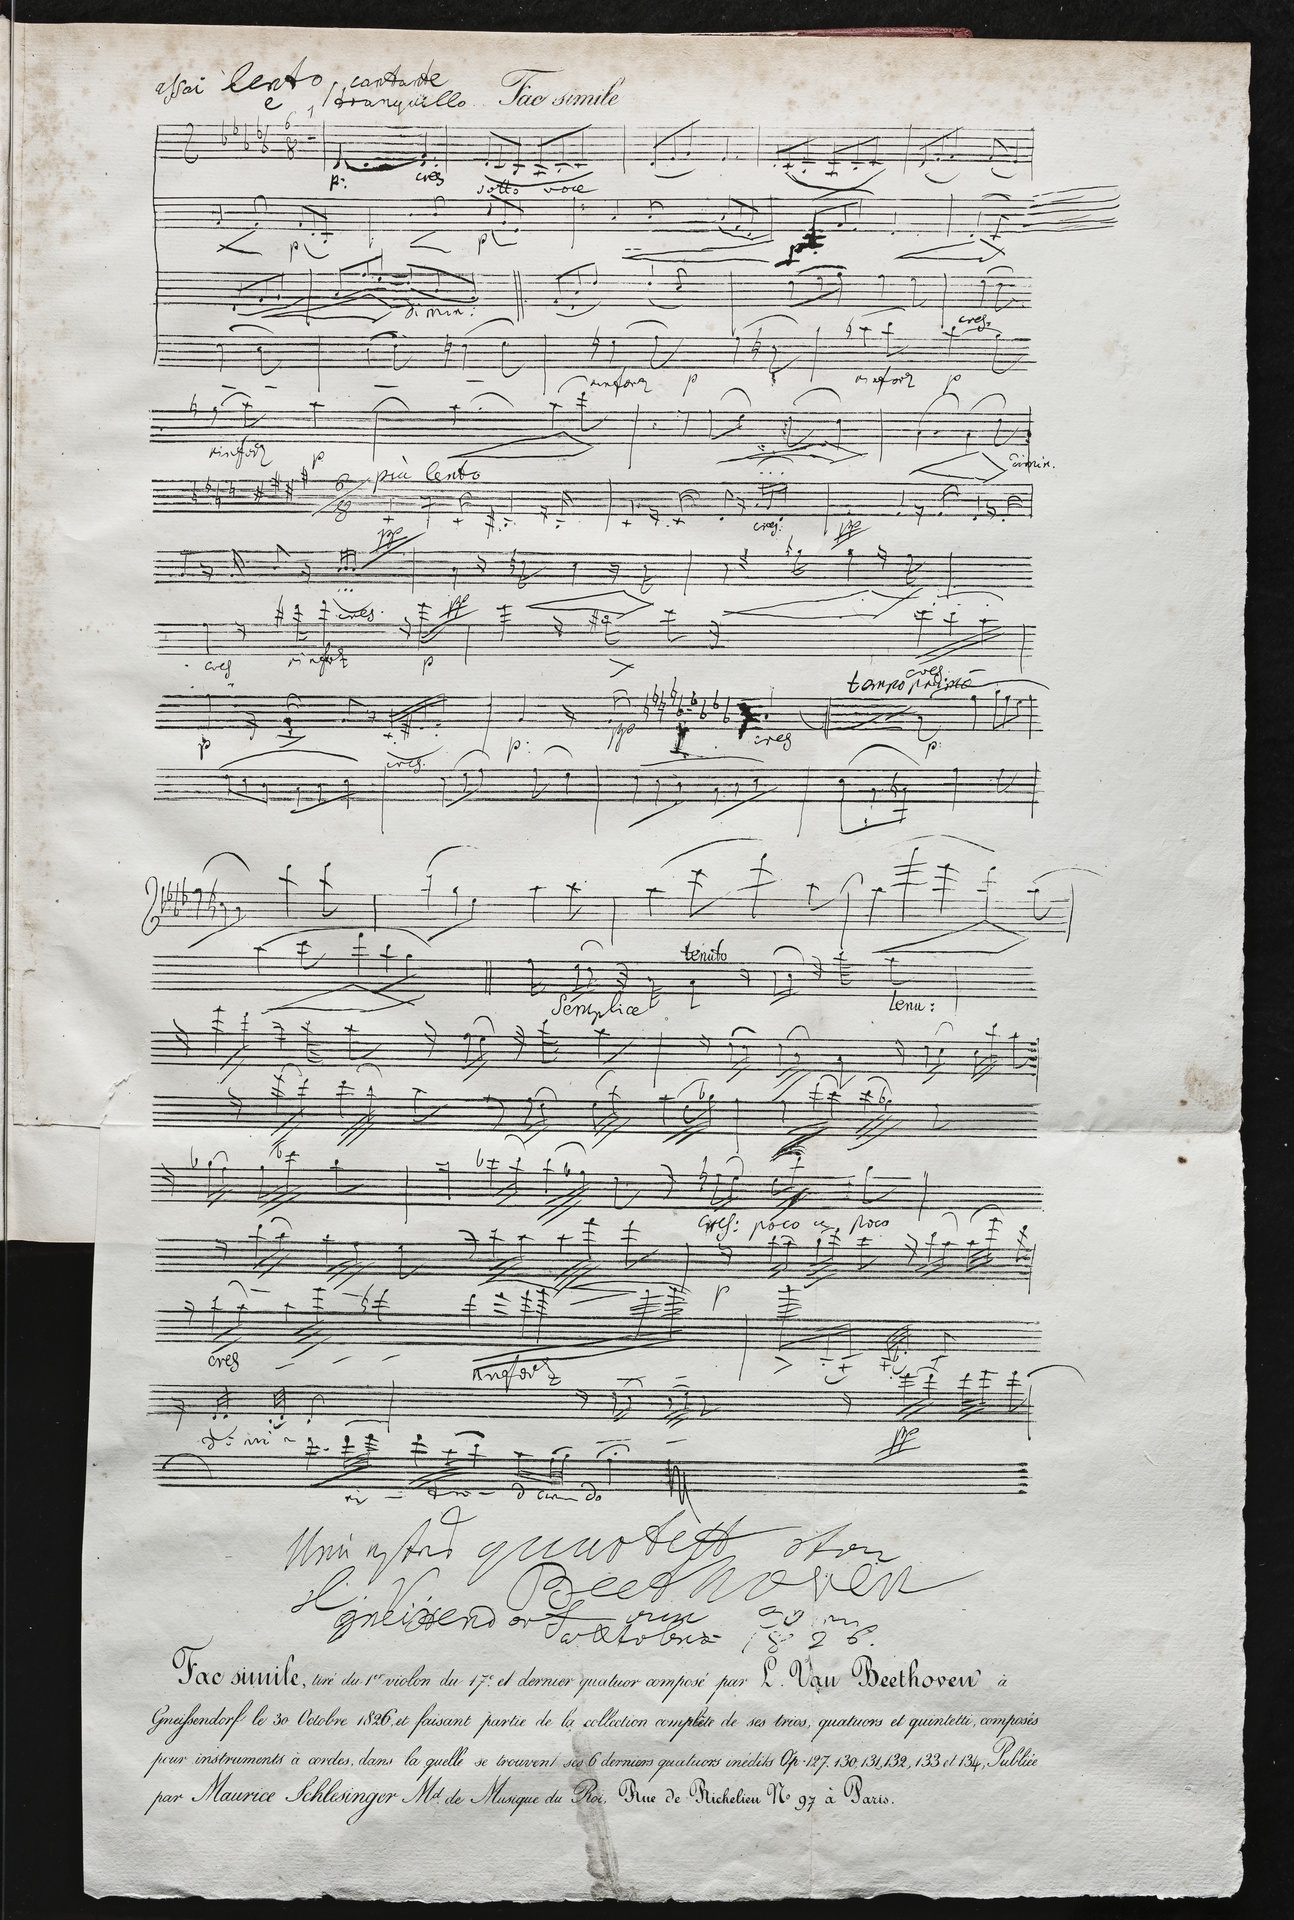 assai lento cantante
e tranquillo Fac simile
p: cres sotto voce
p p p
dimin:
cres.
rinforz p rinforz p
rinforz p dimin.
più lento
pp cres: pp
cres. pp
cres rinforz p cres
tempo primo
p cres. p: pp cres p:
tenuto
Semplice tenu:
cres: poco a poco
p
cres rinforz
pp
quartett
Beethoven
gneixendorf am 30ten
oktober 1826.
Fac simile, tiré du 1er violon du 17e et dernier quatuor composé par L. Van Beethoven à
Gneißendorf le 30 Octobre 1826, et faisant partie de la collection complète de ses trios, quatuors et quintetti, composés
pour instruments à cordes, dans la quelle se trouvent ses 6 derniers quatuors inédits Op. 127, 130, 131, 132, 133 et 134, Publiée
par Maurice Schlesinger Md. de Musique du Roi, Rue de Richelieu No 97 à Paris.